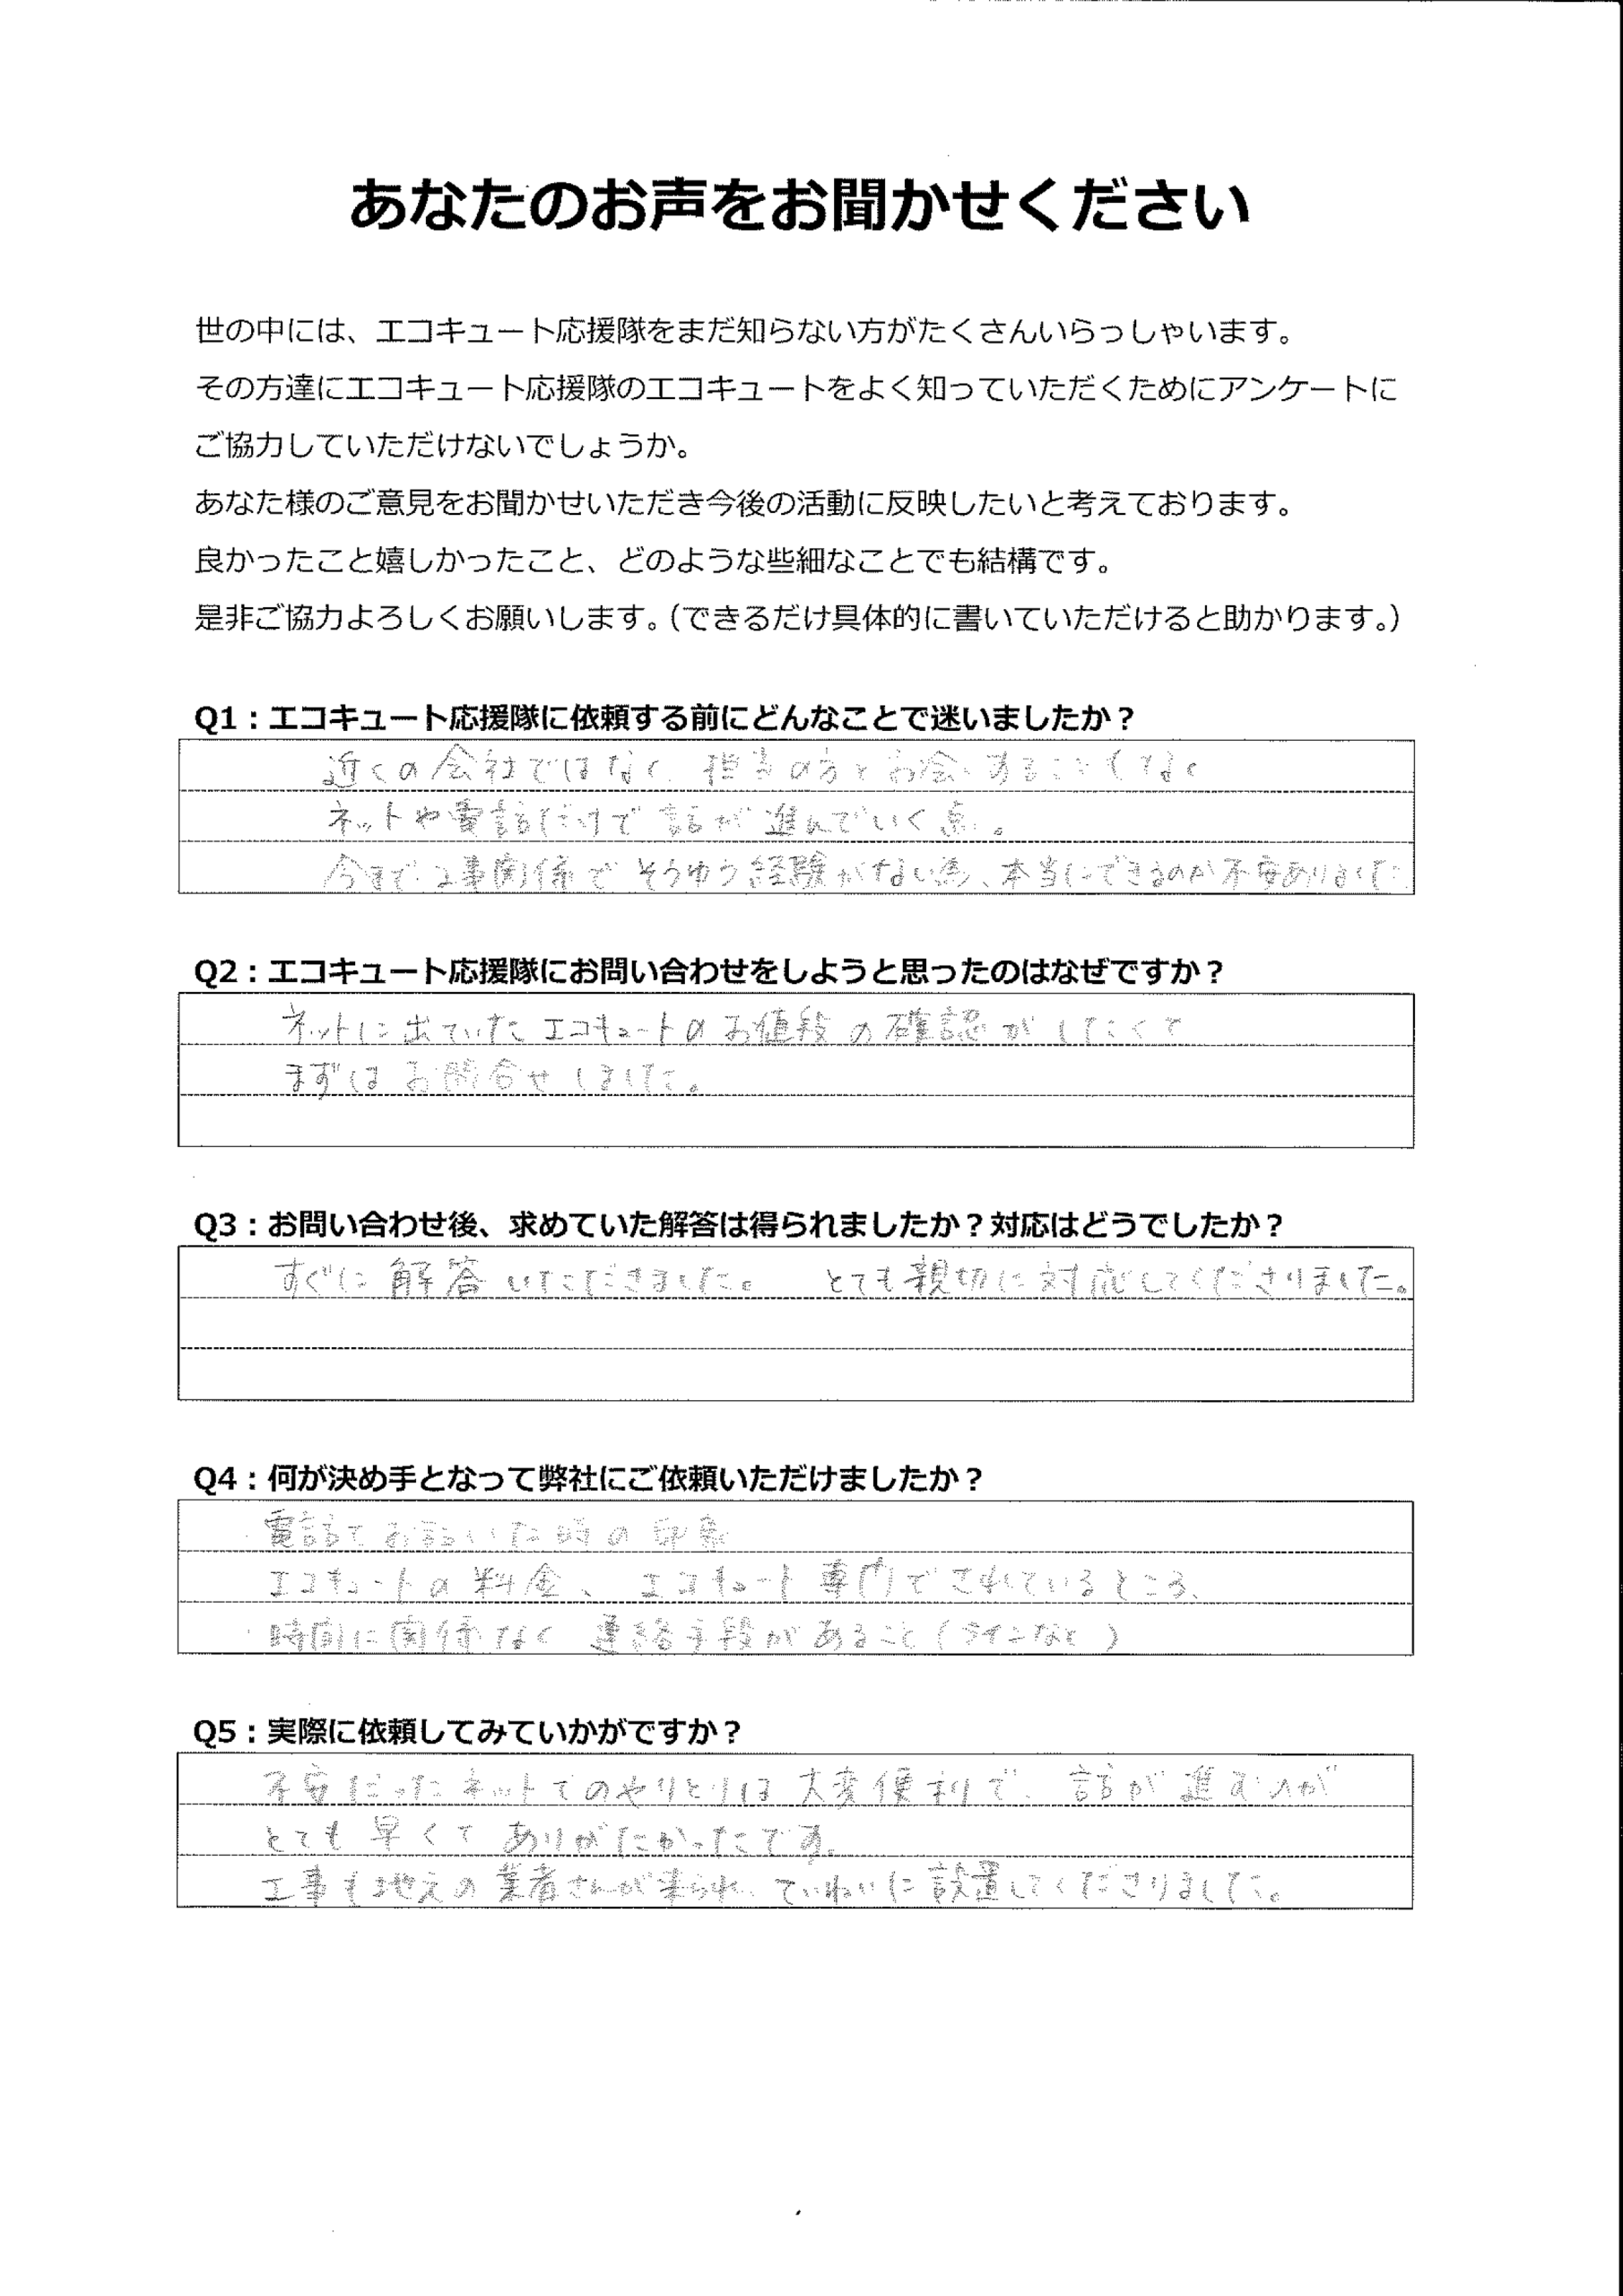 あなたのお声をお聞かせください
世の中には、エコキュート応援隊をまだ知らない方がたくさんいらっしゃいます。
その方達にエコキュート応援隊のエコキュートをよく知っていただくためにアンケートに
ご協力していただけないでしょうか。
あなた様のご意見をお聞かせいただき今後の活動に反映したいと考えております。
良かったこと嬉しかったこと、どのような些細なことでも結構です。
是非ご協力よろしくお願いします。（できるだけ具体的に書いていただけると助かります。）
Q1：エコキュート応援隊に依頼する前にどんなことで迷いましたか？
近くの会社ではなく、担当の方とお会いすることもなく
ネットや電話だけで話が進んでいく点。
今まで工事関係でそうゆう経験がない為、本当にできるのか不安ありました
Q2：エコキュート応援隊にお問い合わせをしようと思ったのはなぜですか？
ネットに出ていたエコキュートのお値段の確認がしたくて
まずはお問合せしました。
Q3：お問い合わせ後、求めていた解答は得られましたか？対応はどうでしたか？
すぐに解答いただきました。 とても親切に対応してくださりました。
Q4：何が決め手となって弊社にご依頼いただけましたか？
電話でお話いた時の印象
エコキュートの料金、エコキュート専門でされているところ、
時間に関係なく連絡手段があること（ラインなど）
Q5：実際に依頼してみていかがですか？
不安だったネットでのやりとりは大変便利で、話が進むのが
とても早くてありがたかったです。
工事も地元の業者さんが来られ、ていねいに設置してくださりました。